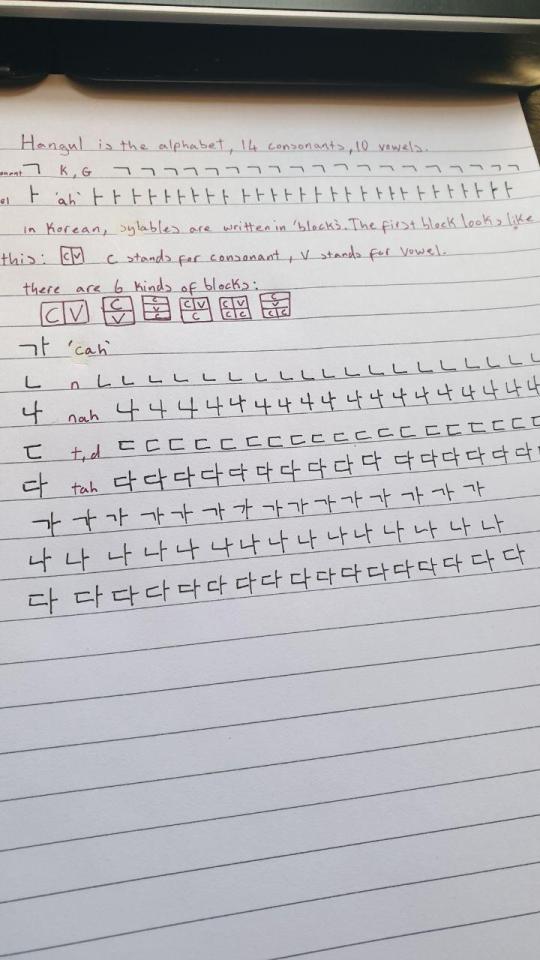 Hangul is the alphabet, 14 consonants, 10 vowels.
ㄱ K, G ㄱ ㄱ ㄱ ㄱ ㄱ ㄱ ㄱ ㄱ ㄱ ㄱ ㄱ ㄱ ㄱ ㄱ ㄱ ㄱ ㄱ ㄱ
ㅏ 'ah' ㅏ ㅏ ㅏ ㅏ ㅏ ㅏ ㅏ ㅏ ㅏ ㅏ ㅏ ㅏ ㅏ ㅏ ㅏ ㅏ ㅏ ㅏ ㅏ ㅏ ㅏ ㅏ ㅏ ㅏ ㅏ
in Korean, sylables are written in 'blocks'. The first block looks like
this: C V C stands for consonant, V stands for vowel.
there are 6 kinds of blocks:
C V C V C V C C V C C V C C C V C C
가 'cah'
ㄴ n ㄴ ㄴ ㄴ ㄴ ㄴ ㄴ ㄴ ㄴ ㄴ ㄴ ㄴ ㄴ ㄴ ㄴ ㄴ ㄴ ㄴ
나 nah 나 나 나 나 나 나 나 나 나 나 나 나 나 나 나 나 나
ㄷ t,d ㄷ ㄷ ㄷ ㄷ ㄷ ㄷ ㄷ ㄷ ㄷ ㄷ ㄷ ㄷ ㄷ ㄷ ㄷ ㄷ ㄷ
다 tah 다 다 다 다 다 다 다 다 다 다 다 다 다 다 다
가 가 가 가 가 가 가 가 가 가 가 가 가 가 가
나 나 나 나 나 나 나 나 나 나 나 나 나 나 나
다 다 다 다 다 다 다 다 다 다 다 다 다 다 다 다